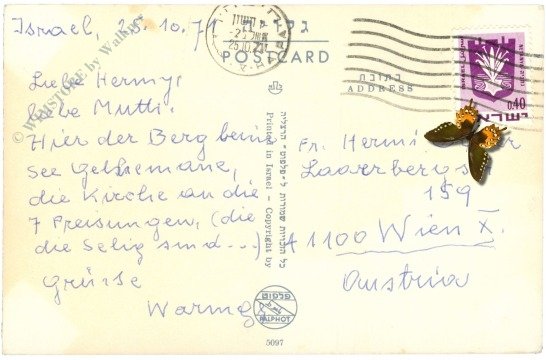 Israel, 25.10.71
Liebe Hermy,
liebe Mutti.
Hier der Berg beim
See Gethsemane,
die Kirche an die
7 Preisungen, (die
die Selig sind...)
Grüsse
גלויה
POSTCARD
כתובת
ADDRESS
26.10.71
ISRAEL
0.40
ישראל
Printed in Israel - Copyright by
PALPHOT
5097
Fr. Hermi
Laaerbergs
159
A 1100 Wien X.
Austria
© WHISTORE by Walker